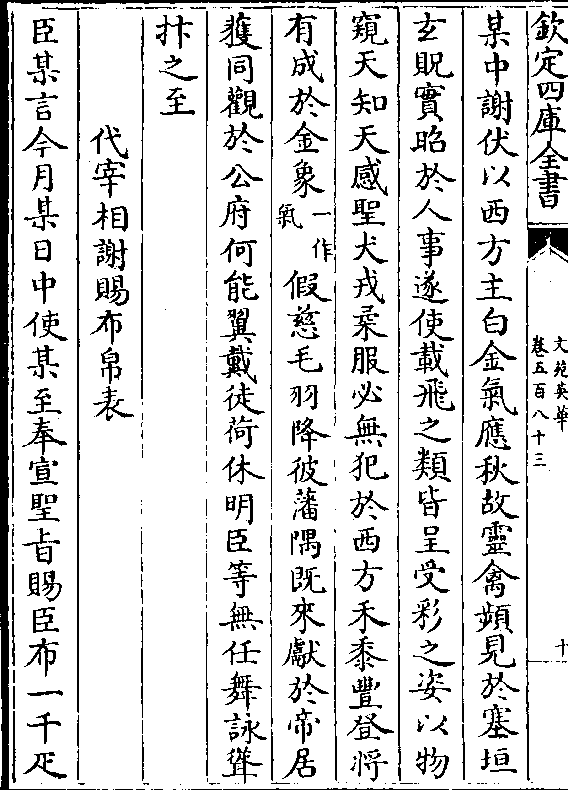 欽定四庫全書
文苑英華
卷五百八十三
十
某中謝伏以西方主白金氣應秋故靈禽頻見於塞垣
玄貺實昭於人事遂使載飛之類皆呈受彩之姿以物
窺天知天感聖犬戎柔服必無犯於西方禾黍豐登將
有成於金象一作氣假慈毛羽降彼藩隅既來獻於帝居
獲同觀於公府何能翼戴徒荷休明臣等無任舞詠聳
抃之至
代宰相謝賜布帛表
臣某言今月某日中使某至奉宣聖旨賜臣布一千疋